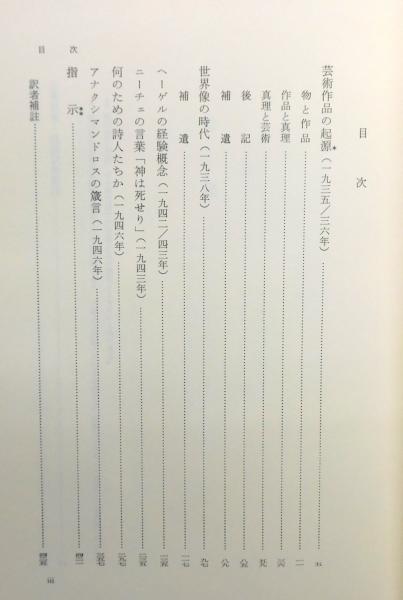 目次
芸術作品の起源*(一九三五/三六年)……五
物と作品……一一
作品と真理……三六
真理と芸術……五九
後記……八五
補遺……八九
世界像の時代(一九三八年)……九七
補遺……一二七
ヘーゲルの経験概念(一九四二/四三年)
ニーチェの言葉「神は死せり」(一九四三年)
何のための詩人たちか(一九四六年)
アナクシマンドロスの箴言(一九四六年)
指示**
訳者補註
目次
iii